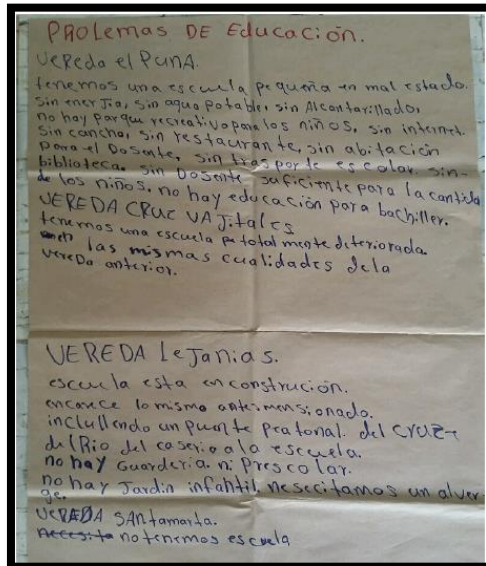 PROLemas DE Educación.
Vereda el PunA.
tenemos una escuela pequeña en mal estado.
sin enerJia, sin agua potable, sin Alcantarillado,
no hay parque recreativo para los niños, sin internet.
sin cancha, sin restaurante, sin abitación
para el Dosente, sin trasporte escolar, sin-
biblioteca. sin Dosente suficiente para la cantida
de los niños, no hay educación para bachiller.
VEREDA CRUCE VAJitales
tenemos una escuela totalmente deteriorada.
las mismas cualidades dela
vereDa anterior.
VEREDA LeJanias.
escuela esta en construción.
encarece lo mismo antes mensionado.
inclullendo un puente peatonal. del CRUZE
del Rio del caserio a la escuela.
no hay Guarderia. ni Prescolar.
no hay Jardin infantil, nesecitamos un alver-
ge.
VEREDA SANtamarta.
no tenemos escuela